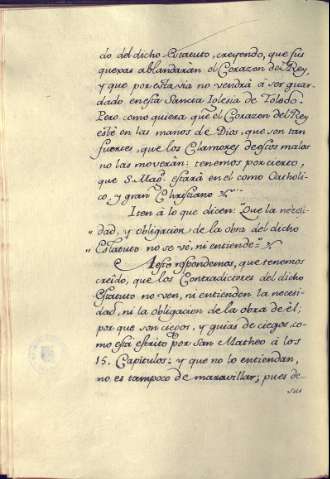 do del dicho Estatuto, creyendo, que sus
quexas ablandaràn el Corazon del Rey,
y que por esta via no vendrà à ser guar-
dado en esta Sancta Iglesia de Toledo.
Pero como quiera, que el Corazon del Rey
estè en las manos de Dios, que son tan
fuertes, que los Clamores de estos malos
no las moveràn: tenemos por cierto,
que S. Magd. esfarà en el como Catholi-
co, y gran Christiano
Iten à lo que dicen: "Que la necesi-
" dad, y obligacion de la obra del dicho
" Estatuto no se vè, ni entiende"
A esto respondemos, que tenemos
creìdo, que los Contradictores del dicho
Estatuto no ven, ni entienden la necesi-
dad, ni la obligacion de la obra de èl,
por que son ciegos, y guias de ciegos co-
mo està escrito por San Matheo à los
15. Capitulos: y que no lo entiendan,
no es tampoco de maravillar; pues de
sus